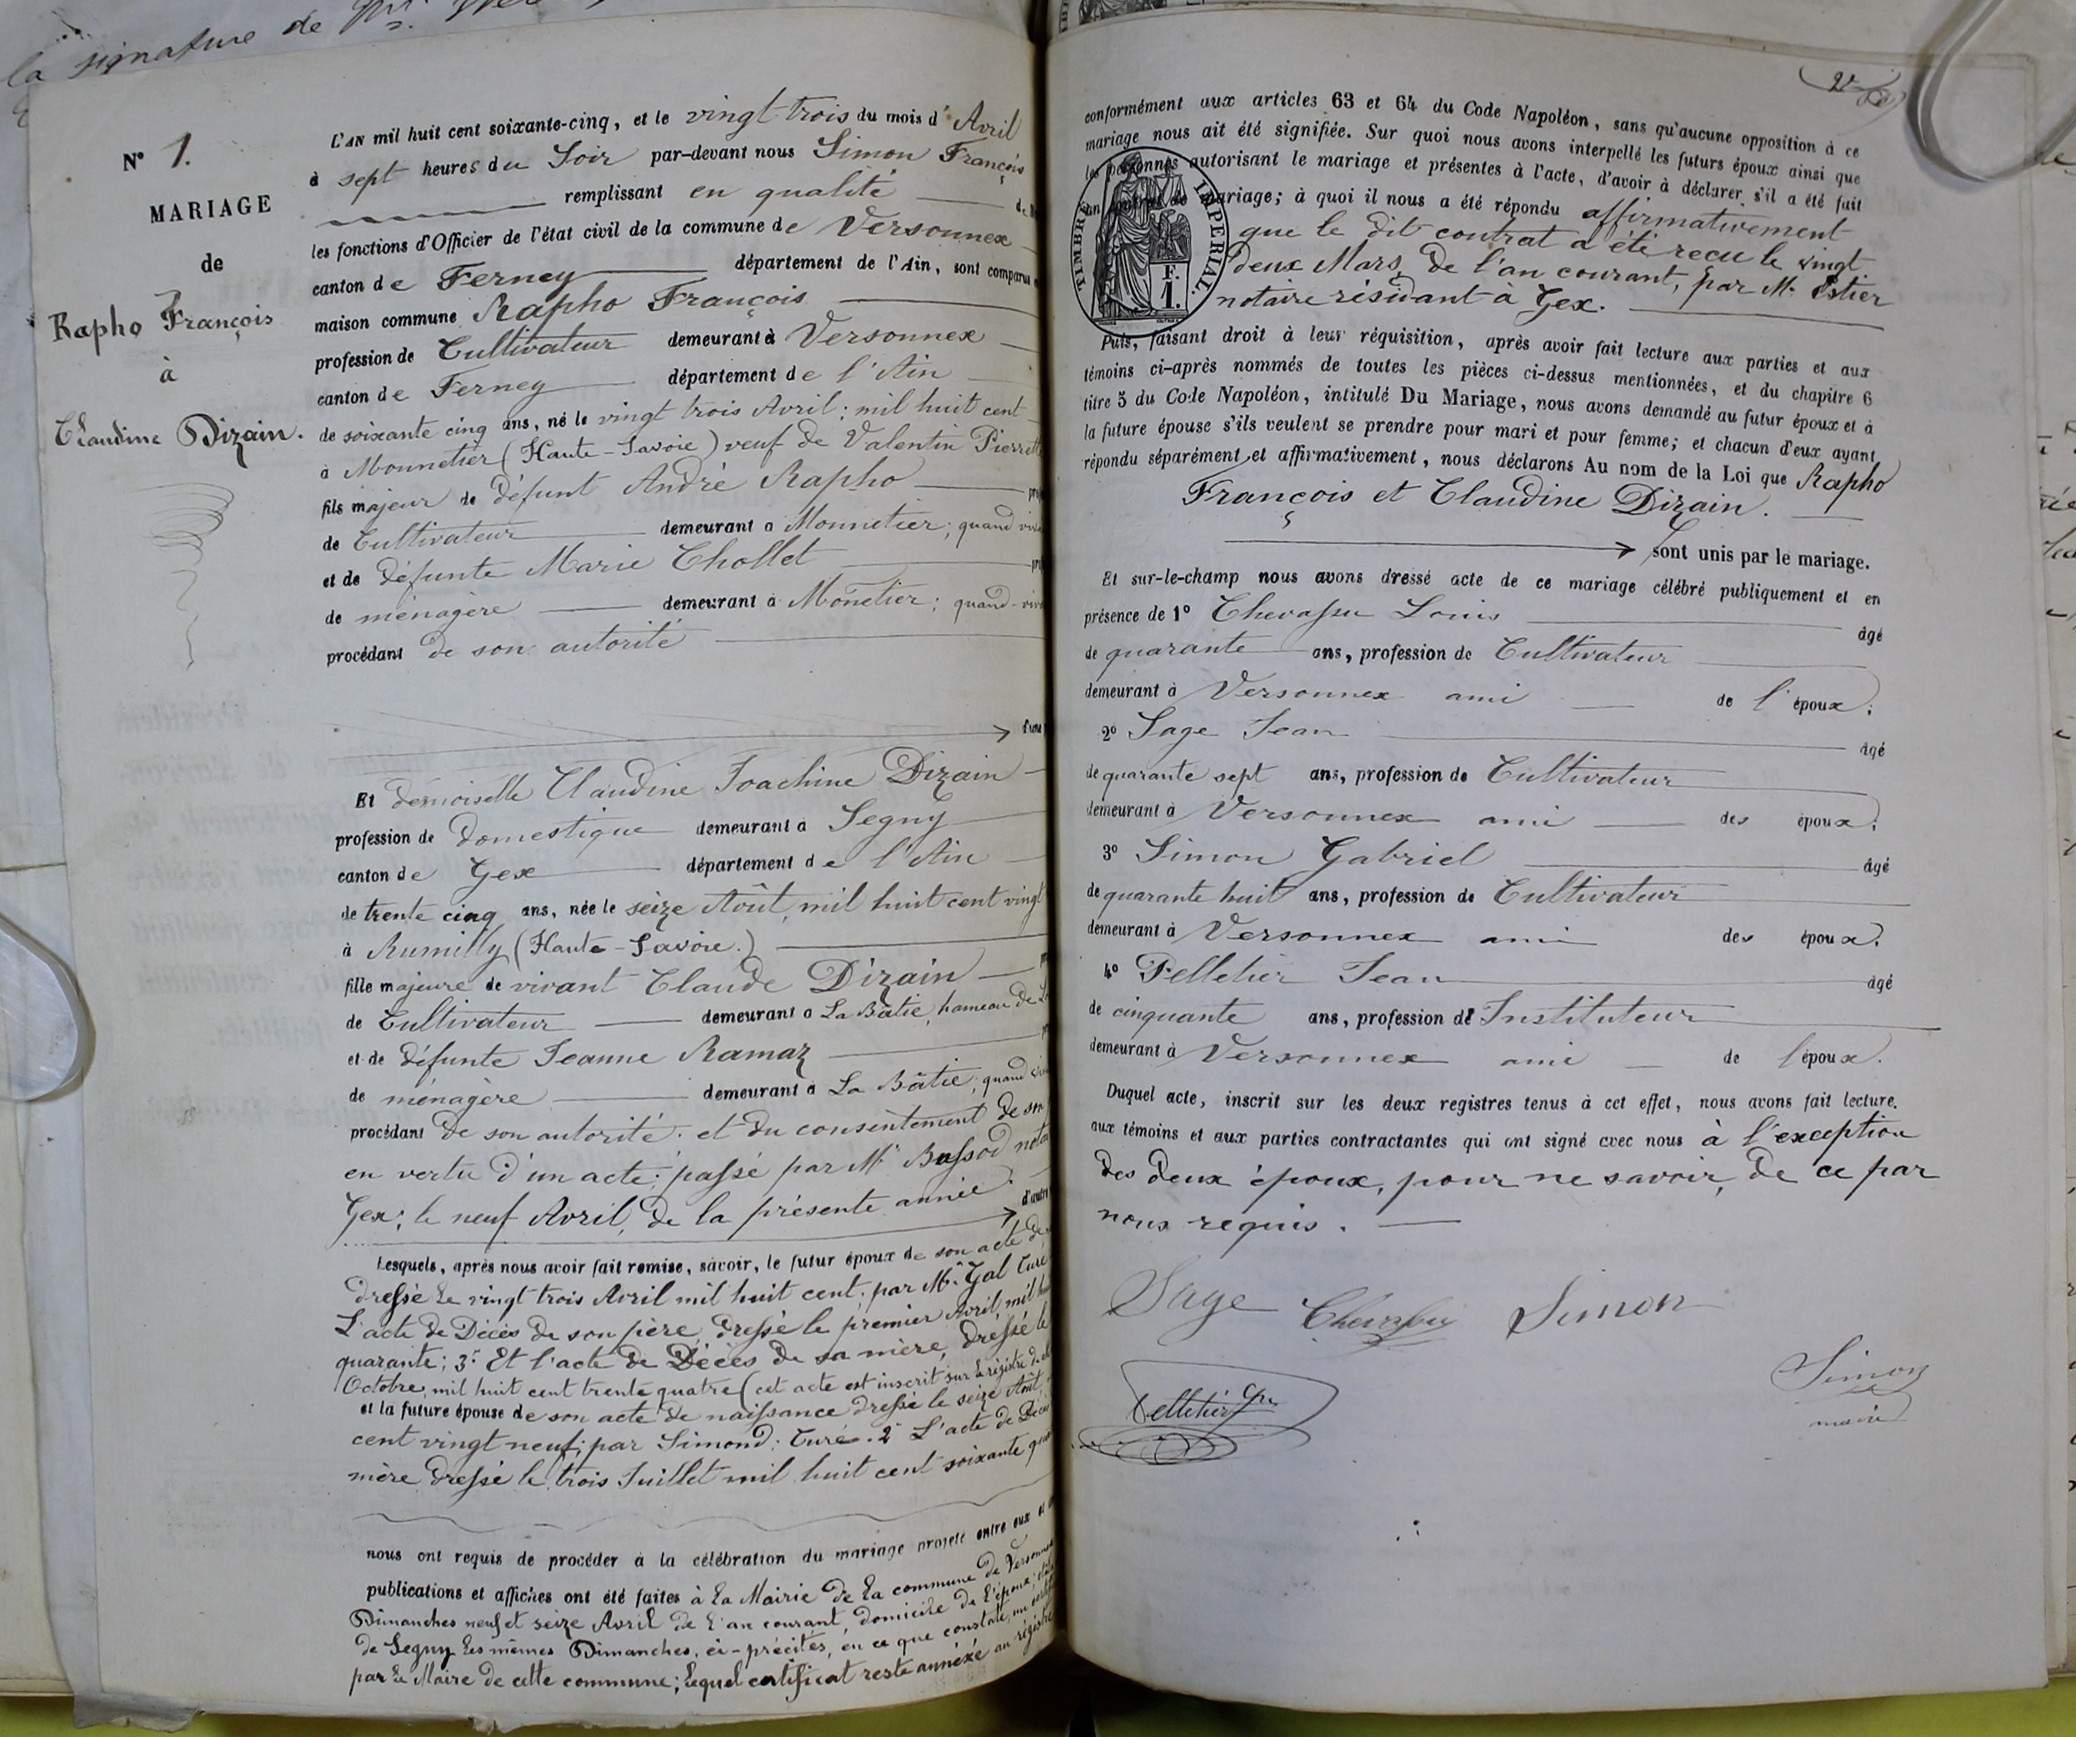 la signature de Mr.
N° 1.
MARIAGE
de
Rapho François
à
Claudine Dizain.
L'AN mil huit cent soixante-cinq, et le vingt-trois du mois d'Avril
à sept heures du Soir par-devant nous Simon François
remplissant en qualité
les fonctions d'Officier de l'état civil de la commune de Versonnex
canton de Ferney département de l'Ain, sont comparus
maison commune Rapho François
profession de Cultivateur demeurant à Versonnex
canton de Ferney département de l'Ain
de soixante cinq ans, né le vingt trois Avril: mil huit cent
à Monnetier (Haute-Savoie) veuf de Valentin Pierrette
fils majeur de défunt André Rapho
de Cultivateur demeurant à Monnetier; quand
et de défunte Marie Chollet
de ménagère demeurant à Monetier; quand
procédant de son autorité
Et demoiselle Claudine Joachine Dizain
profession de domestique demeurant à Segny
canton de Gex département de l'Ain
de trente cinq ans, née le seize Août, mil huit cent vingt
à Rumilly (Haute-Savoie.)
fille majeure de vivant Claude Dizain
de Cultivateur demeurant à La Bâtie, hameau de
et de défunte Jeanne Ramaz
de ménagère demeurant à La Bâtie; quand
procédant de son autorité. et du consentement de son
en vertu d'un acte; passé par Mr Bussod
Gex; le neuf Avril, de la présente année. d'autre
Lesquels, après nous avoir fait remise, savoir, le futur époux de son acte de
dressé le vingt trois Avril mil huit cent; par Mr. Gal Curé
L'acte de Décès de son père, dressé le premier Avril, mil
quarante; 3° Et l'acte de Décès de sa mère, dressé le
Octobre, mil huit cent trente quatre (cet acte est inscrit sur le régistre de
et la future épouse de son acte de naissance dressé le seize Août,
cent vingt neuf; par Simond; Curé. 2° L'acte de Décès
mère dressé le trois Juillet mil huit cent soixante
nous ont requis de procéder à la célébration du mariage projeté entre eux et
publications et affiches ont été faites à la Mairie de la commune de Versonnex
Dimanches neuf et seize Avril de l'an courant, domicile de l'époux;
de Segny les mêmes Dimanches, ci-précités, en ce que constate, un
par le Maire de cette commune; lequel certificat reste annexé au régistre
2
conformément aux articles 63 et 64 du Code Napoléon, sans qu'aucune opposition à ce
mariage nous ait été signifiée. Sur quoi nous avons interpellé les futurs époux ainsi que
les personnes autorisant le mariage et présentes à l'acte, d'avoir à déclarer s'il a été fait
un contrat de mariage; à quoi il nous a été répondu affirmativement
que le dit contrat a été recu le vingt
deux Mars, de l'an courant, par Mr. Estier
notaire résidant à Gex.
TIMBRE IMPERIAL.
F.
1.
Puis, faisant droit à leur réquisition, après avoir fait lecture aux parties et aux
témoins ci-après nommés de toutes les pièces ci-dessus mentionnées, et du chapitre 6
titre 5 du Code Napoléon, intitulé Du Mariage, nous avons demandé au futur époux et à
la future épouse s'ils veulent se prendre pour mari et pour femme; et chacun d'eux ayant
répondu séparément et affirmativement, nous déclarons Au nom de la Loi que Rapho
François et Claudine Dizain.
sont unis par le mariage.
Et sur-le-champ nous avons dressé acte de ce mariage célébré publiquement et en
présence de 1° Chevassu Louis
âgé
de quarante ans, profession de Cultivateur
demeurant à Versonnex ami de l'époux;
2° Sage Jean âgé
de quarante sept ans, profession de Cultivateur
demeurant à Versonnex ami des époux;
3° Simon Gabriel âgé
de quarante huit ans, profession de Cultivateur
demeurant à Versonnex ami des époux.
4° Pelletier Jean âgé
de cinquante ans, profession de Instituteur
demeurant à Versonnex ami de l'époux.
Duquel acte, inscrit sur les deux registres tenus à cet effet, nous avons fait lecture.
aux témoins et aux parties contractantes qui ont signé avec nous à l'exception
des deux époux, pour ne savoir, de ce par
nous requis.
Sage Chevassu Simon
Simon
maire
Pelletier